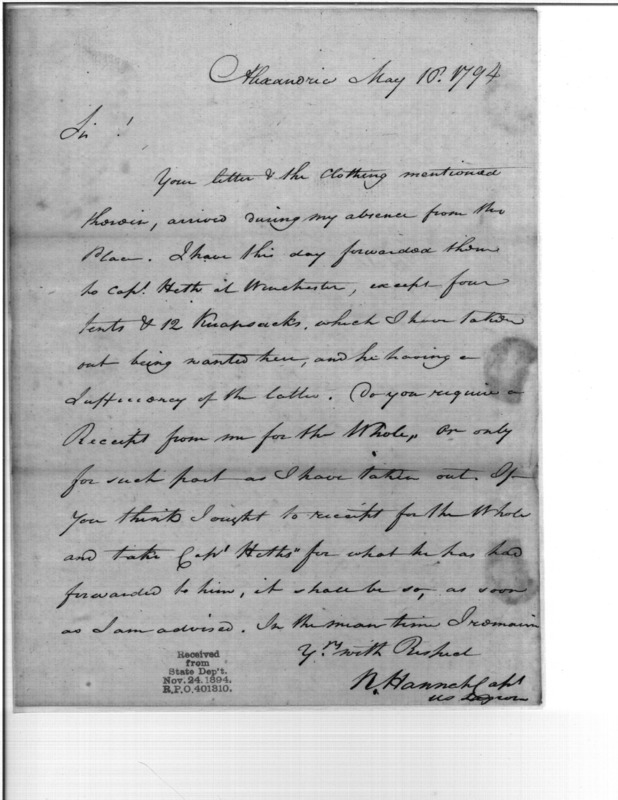 Alexandria May 18. 1794
Sir !
Your letter & the Clothing mentioned
therein, arrived during my absence from the
Place. I have this day forwarded them
to Capt. Heth at Winchester, except four
tents & 12 Knapsacks, which I have taken
out being wanted here, and he having a
Sufficiency of the latter. Do you require a
Receipt from me for the Whole, or only
for such part as I have taken out. If
You think I ought to receipt for the Whole
and take Capt Heths" for what he has had
forwarded to him, it shall be so, as soon
as I am advised. In the mean time I remain
Yrs. with Respect
R. Hannah Capt
US Legion
Received
from
State Dep't.
Nov. 24. 1894.
R.P.O. 401310.